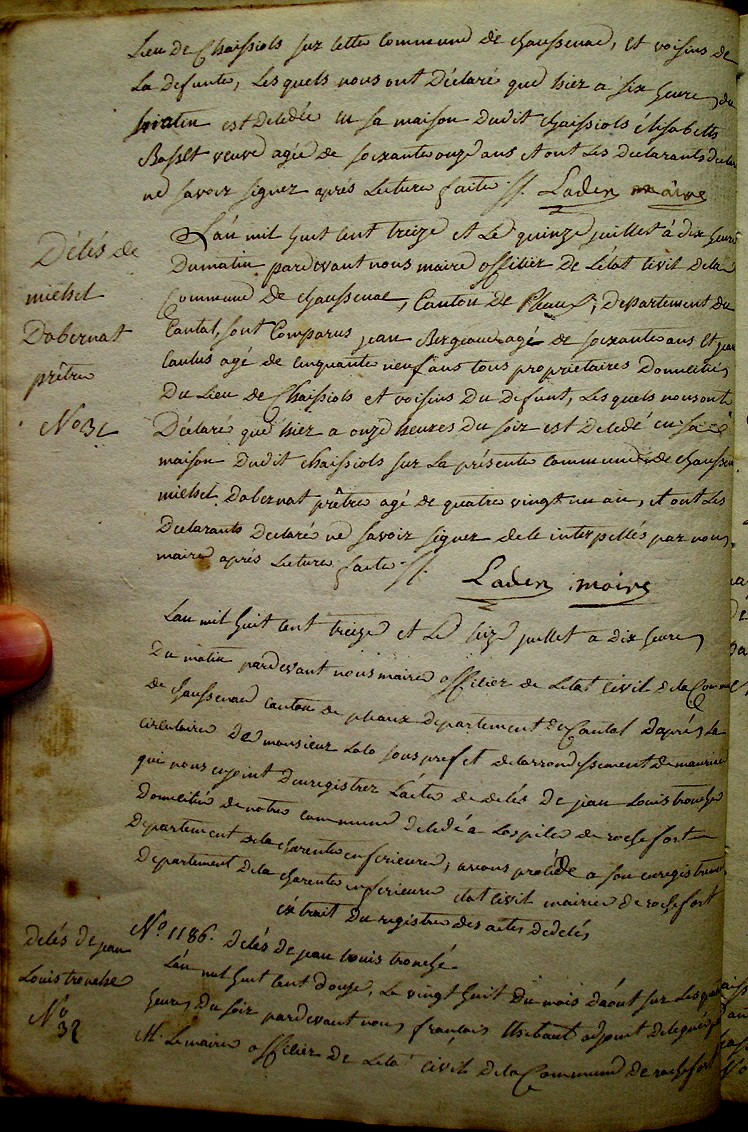 Lieu de Chaissiols sur cette commune de chaussenac, et voisins de
La defunte, Lesquels nous ont Déclaré que hier a six heures du
matin est decedée en sa maison dudit chaissiols élisabette
veuve agée de soixante onze ans et ont Les declarants déclaré
ne savoir signer aprés Lecture faite //. Laden maire
Décés de
michel
Dabernat
prêtre
No 31
L'an mil huit cent treize et Le quinze juillet à dix heures
Du matin pardevant nous maire officier de L'état Civil de la
Commune de chaussenac, Canton de Pleaux, Departement du
Cantal, sont Comparus jean agé de soixante ans Et jean
agé de cinquante neuf ans tous proprietaires Domiciliés
Du Lieu de Chaissiols et voisins Du défunt, Lesquels nous ont
Déclaré que hier a onze heures Du soir est decedé en sa
maison Dudit chaissiols sur La présente commune de chaussenac
michel Dabernat prêtre agé de quatre vingt un an, et ont Les
Declarants declaré ne savoir signer de ce interpellés par nous
maire aprés Lecture faite //.
Laden maire
Lan mil huit cent treize et Le seize juillet a dix heures
Du matin pardevant nous maire officier de Letat civil de la Commune
de chaussenac canton de pleaux departement du Cantal Daprés La
circulaire De monsieur sous prefet de larrondissement de mauriac
qui nous enjoint Denregistrer Lacte de decés De jean Louis tronche
Domicilié de notre commune decedé a Lospice de rochefort
Departement de la charente inferieure, avons procédé a son enregistrement
Departement de la charente inferieure etat civil mairie de rochefort
extrait Du registre des actes De decés
decés de jean
Louis tronche
No
32
No 1186. decés De jean Louis tronche.
Lan mil huit cent douze, Le vingt huit Du mois Daout sur Les quatre
heures Du soir pardevant nous françois thibaut adjoint delegué de
Mr. Le maire officier De Letat civil De la Commune De rochefort